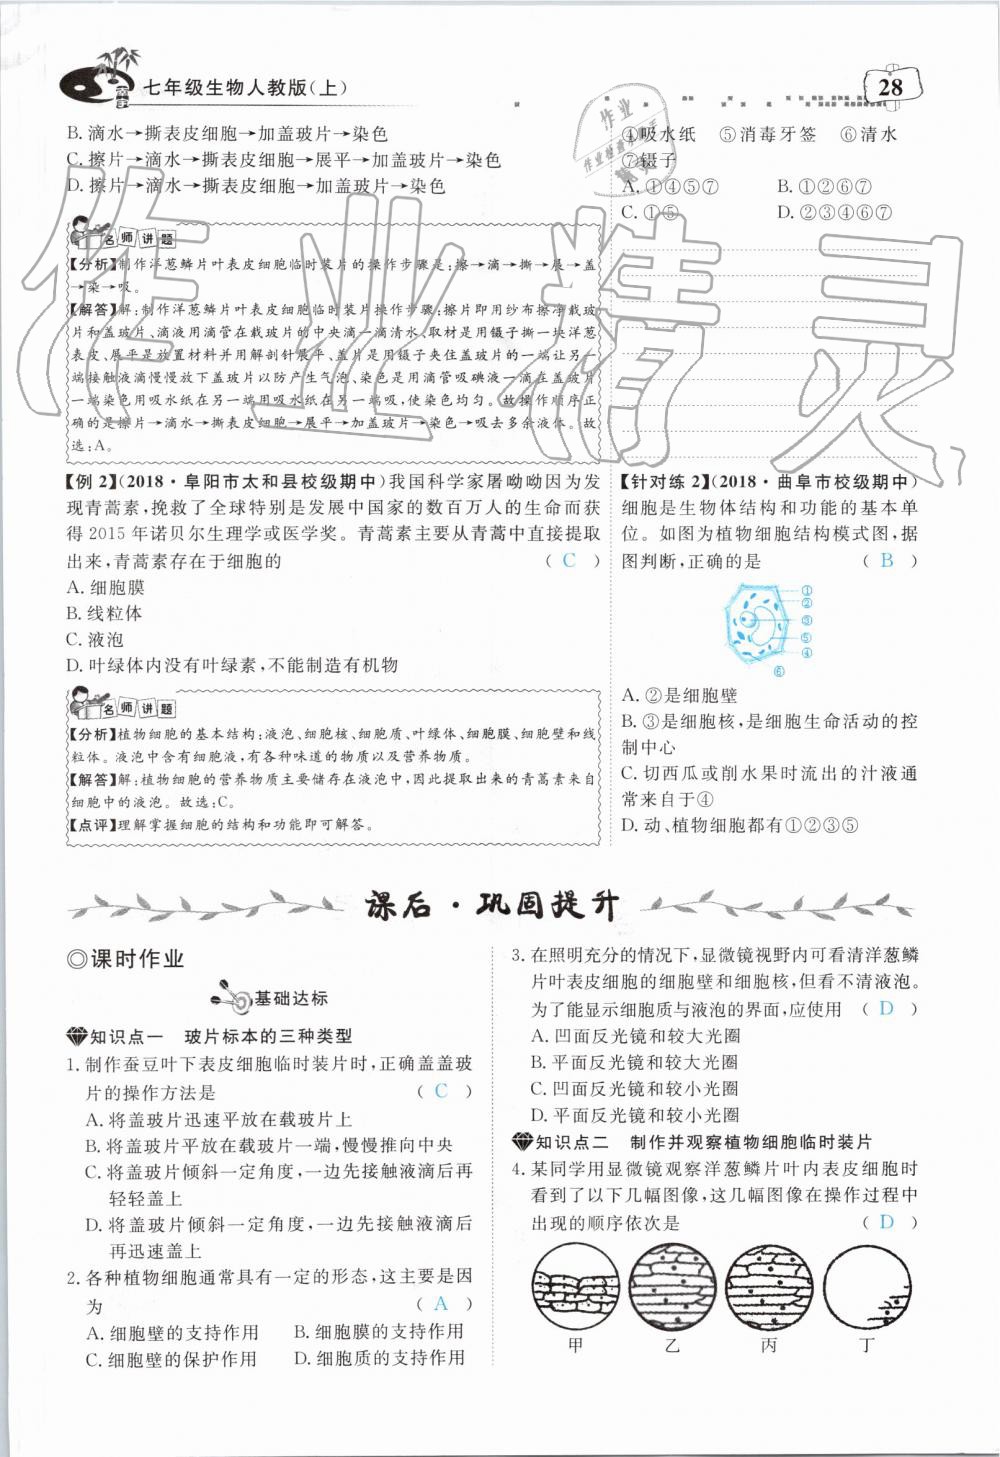 七年级生物人教版(上)
28
B. 滴水→撕表皮细胞→加盖玻片→染色
C. 擦片→滴水→撕表皮细胞→展平→加盖玻片→染色
D. 擦片→滴水→撕表皮细胞→加盖玻片→染色
名师讲题
【分析】制作洋葱鳞片叶表皮细胞临时装片的操作步骤是:擦→滴→撕→展→盖
→染→吸。
【解答】解:制作洋葱鳞片叶表皮细胞临时装片操作步骤:擦片即用纱布擦净载玻
片和盖玻片、滴液用滴管在载玻片的中央滴一滴清水、取材是用镊子撕一块洋葱
表皮、展平是放置材料并用解剖针展平、盖片是用镊子夹住盖玻片的一端让另一
端接触液滴慢慢放下盖玻片以防产生气泡、染色是用滴管吸碘液一滴在盖玻片
一端染色用吸水纸在另一端用吸水纸在另一端吸,使染色均匀。故操作顺序正
确的是擦片→滴水→撕表皮细胞→展平→加盖玻片→染色→吸去多余液体。故
选:A。
【例 2】(2018·阜阳市太和县校级期中)我国科学家屠呦呦因为发
现青蒿素,挽救了全球特别是发展中国家的数百万人的生命而获
得 2015 年诺贝尔生理学或医学奖。青蒿素主要从青蒿中直接提取
出来,青蒿素存在于细胞的 ( C )
A. 细胞膜
B. 线粒体
C. 液泡
D. 叶绿体内没有叶绿素,不能制造有机物
名师讲题
【分析】植物细胞的基本结构:液泡、细胞核、细胞质、叶绿体、细胞膜、细胞壁和线
粒体。液泡中含有细胞液,有各种味道的物质以及营养物质。
【解答】解:植物细胞的营养物质主要储存在液泡中,因此提取出来的青蒿素来自
细胞中的液泡。故选:C。
【点评】理解掌握细胞的结构和功能即可解答。
④吸水纸 ⑤消毒牙签 ⑥清水
⑦镊子
A. ①④⑤⑦ B. ①②⑥⑦
C. ①⑤ D. ②③④⑥⑦
【针对练 2】(2018·曲阜市校级期中)
细胞是生物体结构和功能的基本单
位。如图为植物细胞结构模式图,据
图判断,正确的是 ( B )
①
②
③
⑤
④
⑥
A. ②是细胞壁
B. ③是细胞核,是细胞生命活动的控
制中心
C. 切西瓜或削水果时流出的汁液通
常来自于④
D. 动、植物细胞都有①②③⑤
课后·巩固提升
◎课时作业
基础达标
知识点一 玻片标本的三种类型
1. 制作蚕豆叶下表皮细胞临时装片时,正确盖盖玻
片的操作方法是 ( C )
A. 将盖玻片迅速平放在载玻片上
B. 将盖玻片平放在载玻片一端,慢慢推向中央
C. 将盖玻片倾斜一定角度,一边先接触液滴后再
轻轻盖上
D. 将盖玻片倾斜一定角度,一边先接触液滴后
再迅速盖上
2. 各种植物细胞通常具有一定的形态,这主要是因
为 ( A )
A. 细胞壁的支持作用 B. 细胞膜的支持作用
C. 细胞壁的保护作用 D. 细胞质的支持作用
3. 在照明充分的情况下,显微镜视野内可看清洋葱鳞
片叶表皮细胞的细胞壁和细胞核,但看不清液泡。
为了能显示细胞质与液泡的界面,应使用 ( D )
A. 凹面反光镜和较大光圈
B. 平面反光镜和较大光圈
C. 凹面反光镜和较小光圈
D. 平面反光镜和较小光圈
知识点二 制作并观察植物细胞临时装片
4. 某同学用显微镜观察洋葱鳞片叶内表皮细胞时
看到了以下几幅图像,这几幅图像在操作过程中
出现的顺序依次是 ( D )
甲 乙 丙 丁
作业精灵